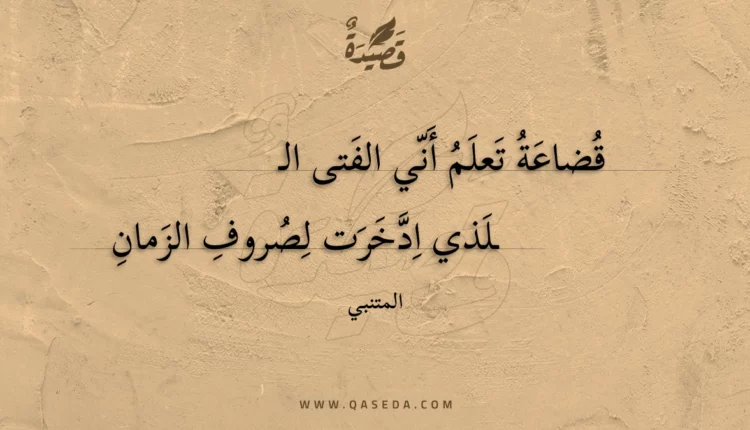 قَصِيدَةٌ
قُضاعَةُ تَعلَمُ أَنّي الفَتى الـ
ـلَذي اِدَّخَرَت لِصُروفِ الزَمانِ
المتنبي
WWW.QASEDA.COM